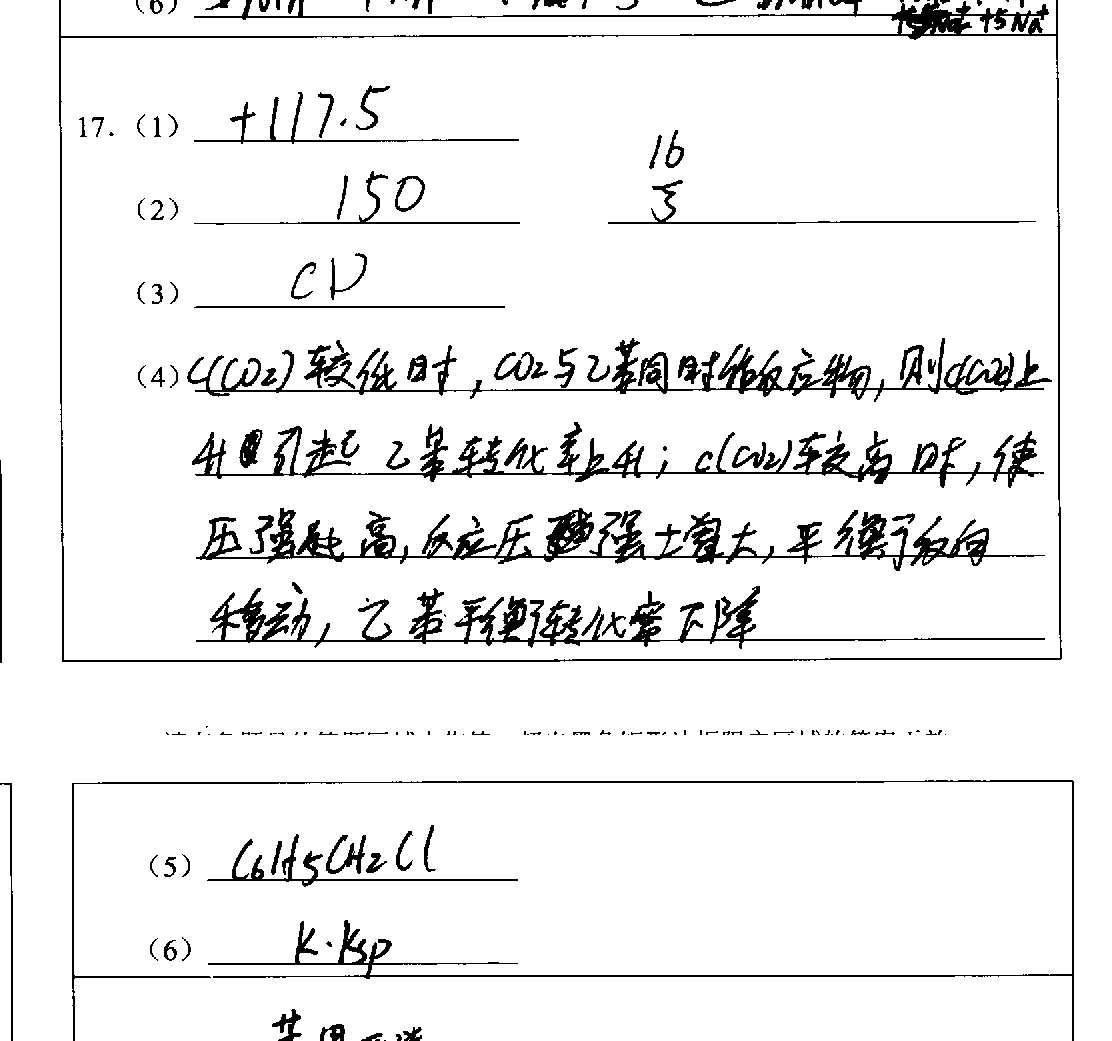 (6)
+5Na⁺
17. (1) +117.5
(2) 150 16/3
(3) CD
(4) C(CO2)较低时,CO2与乙苯同时作反应物,则c(CO2)上
升引起乙苯转化率上升;c(CO2)较高时,使
压强起高,反应压强增大,平衡反向
移动,乙苯平衡转化率下降
(5) C6H5CH2Cl
(6) K·Ksp